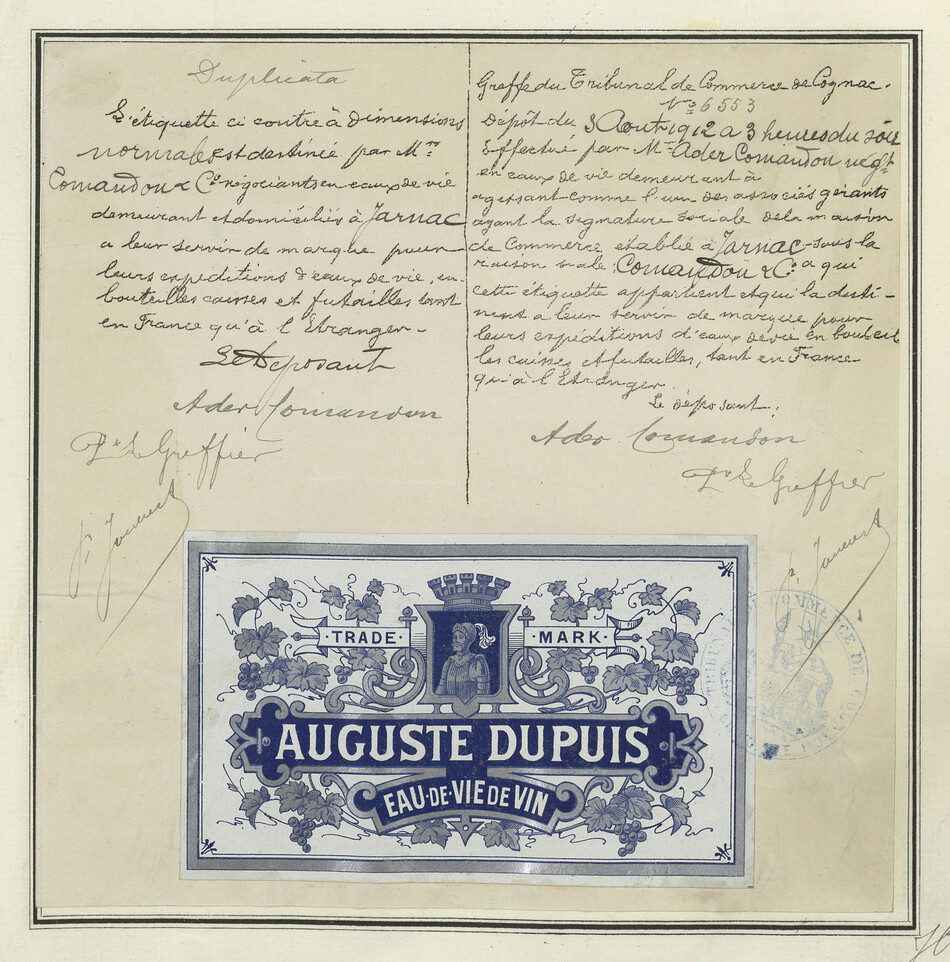 Duplicata
L'étiquette ci contre à dimensions
normales est destinée par Mrs
Comandon & Co négociants en eaux de vie
demeurant et domiciliés à Jarnac
a leur servir de marque pour
leurs expéditions d'eaux de vie, en
bouteilles caisses et futailles tant
en France qu'à l'Etranger -
Le Déposant
Ader Comandon
Pr Le Greffier
Greffe du Tribunal de Commerce de Cognac.
No 6553
Dépôt du 3 Aout 1912 a 3 heures du soir
Effectué par Mr Ader Comandon négt
en eaux de vie demeurant à
agissant comme l'un des associés gérants
ayant la signature sociale de la maison
de Commerce établie à Jarnac - sous la
raison sociale, Comandon & Co a qui
cette étiquette appartient et qui la desti-
nent a leur servir de marque pour
leurs expéditions d'eaux de vie en bouteil
les caisses et futailles, tant en France
qu'à l'Etranger.
Le déposant.
Ader Comandon
Pr Le Greffier
TRADE MARK
AUGUSTE DUPUIS
EAU-DE-VIE DE VIN
TRIBUNAL DE COMMERCE DE COGNAC